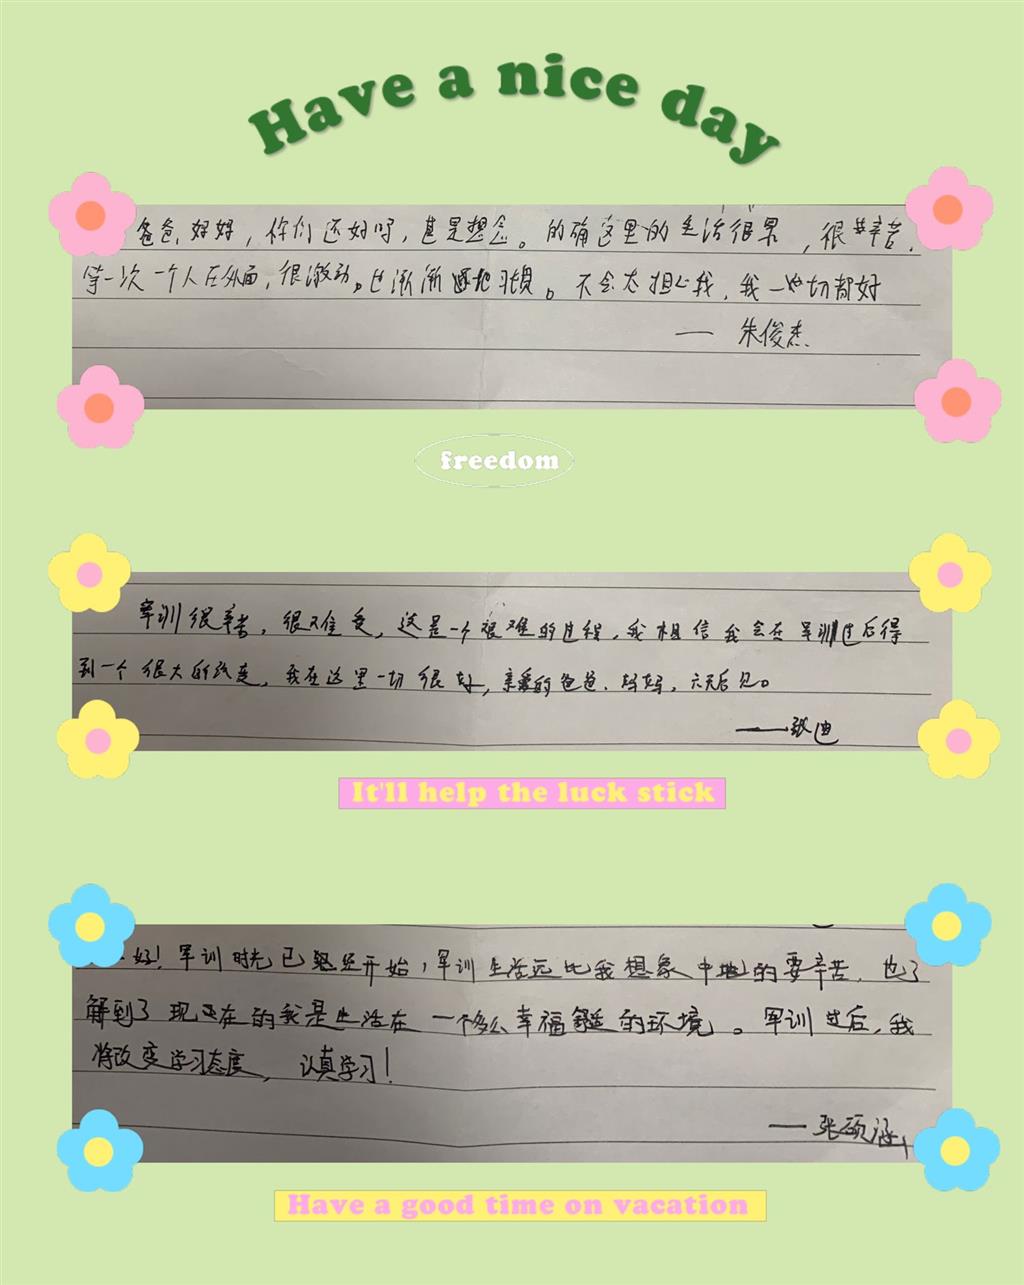 Have a nice day
爸爸,妈妈,你们还好吗,甚是想念。的确这里的生活很累,很辛苦,
第一次一个人在外面,很激动。也渐渐适地习惯。不会太担心我,我一切都好
—— 朱俊杰
freedom
军训很辛苦,很难受,这是一个很难的过程,我相信我会在军训过后得
到一个很大的改变,我在这里一切很好,亲爱的爸爸、妈妈,六天后见。
——张迪
It'll help the luck stick
好!军训时光已经开始,军训生活远比我想象中地的要辛苦,也了
解到了现正在的我是生活在一个多么幸福的环境。军训过后,我
将改变学习态度,认真学习!
——张硕涵
Have a good time on vacation